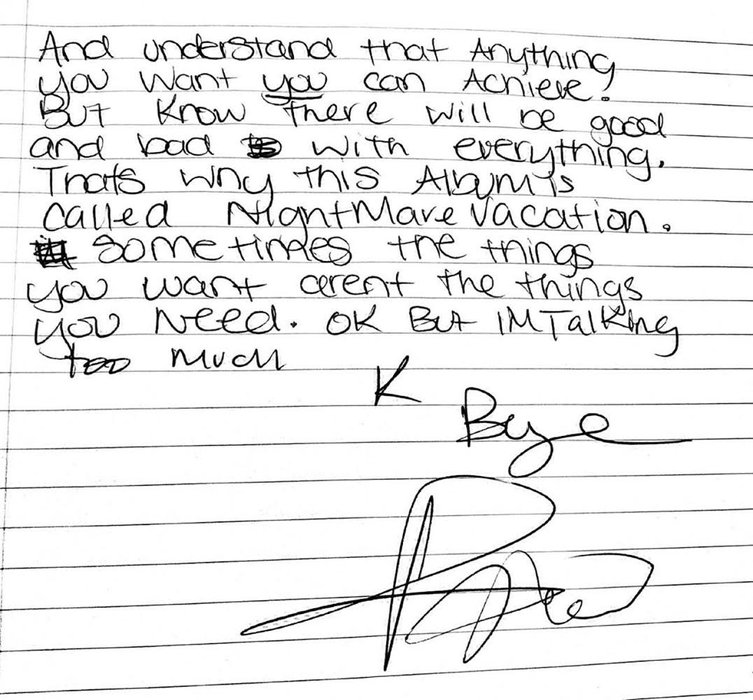 And understand that Anything
you want you can Achieve!
But know there will be good
and bad with everything.
Thats why this Album is
called NightMare Vacation.
sometimes the things
you want arent the things
you Need. OK But IM Talking
too much
K
Bye